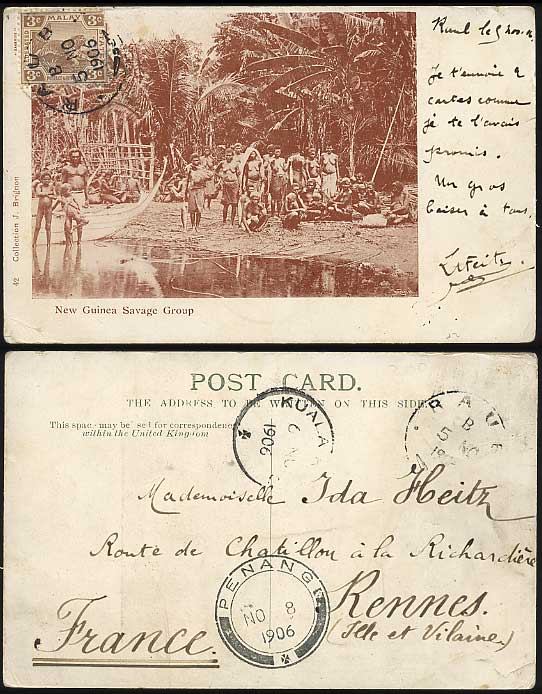 3c MALAY 3c
RAUB
B
5 NO
1906
Raub le 5 nov.
Je t'envoie 2
cartes comme
je te l'avais
promis.
Un gros
baiser à tous,
LHeitz.
42 Collection J. Brignon
New Guinea Savage Group
POST CARD.
THE ADDRESS TO BE WRITTEN ON THIS SIDE
This space may be used for correspondence
within the United Kingdom
KUALA
6 NO
1906
RAUB
B
5 NO
19
Mademoiselle Ida Heitz
Route de Chatillon à la Richardière
Rennes.
(Ille et Vilaine)
France.
PENANG
NO 8
1906